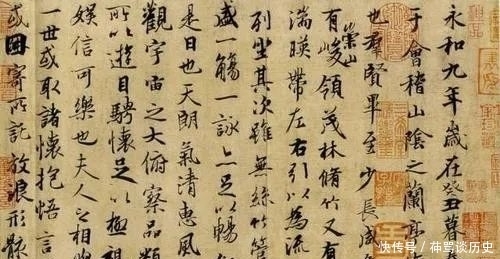 永和九年歲在癸丑暮
于會稽山陰之蘭亭
也群賢畢至少長咸
有崇山峻領茂林脩竹又有
湍暎帶左右引以為流
列坐其次雖無絲竹管
盛一觴一詠亦足以暢
是日也天朗氣清惠風
觀宇宙之大俯察品類
所以遊目騁懷足以極視
娛信可樂也夫人之相與
一世或取諸懷抱悟言
或因寄所託放浪形骸
快传号 / 神骂谈历史